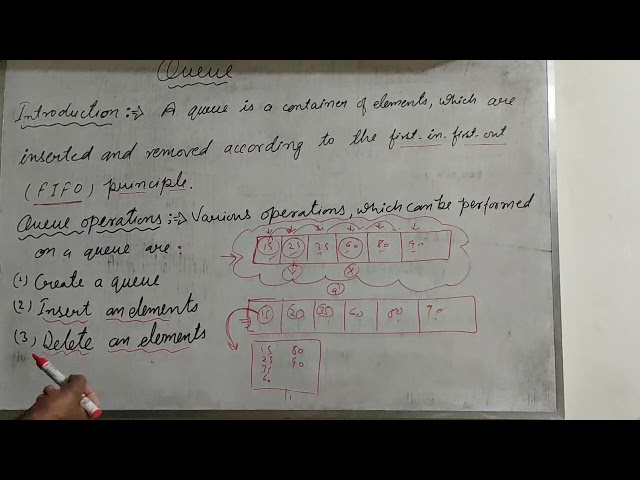 Queue
Introduction :→ A queue is a container of elements, which are
inserted and removed according to the first-in-first-out
(FIFO) principle.
Queue operations :→ Various operations, which can be performed
on a queue are :
(1) Create a queue
(2) Insert an elements
(3) Delete an elements
15 25 35 60 80 90
15 35 60 80 90
15 80
25 90
35
60